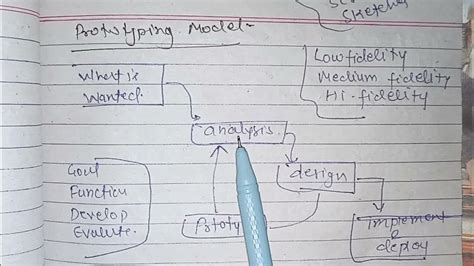 Sketches
Prototyping Model-
Low fidelity
Medium fidelity
Hi-fidelity
What is
Wanted.
analysis.
design
Goal
Function
Develop
Evaluate.
Prototy
Implement
&
deploy